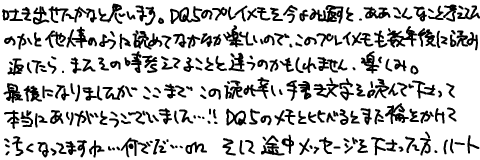 吐き出せたかなと思います。DQ5のプレイメモを今よみ返すと、ああこんなこと考えてん
のかと他人事のように読めてなかなか楽しいので、このプレイメモも数年後に読み
返したら、またその時考えてることと違うのかもしれません、楽しみ。
最後になりましたがここまでこの読み辛い手書き文字を読んで下さって
本当にありがとうございました…!! DQ5のメモと比べるとまた輪をかけて
汚くなってますね…何でだ…orz そして途中メッセージを下さった方、ハート